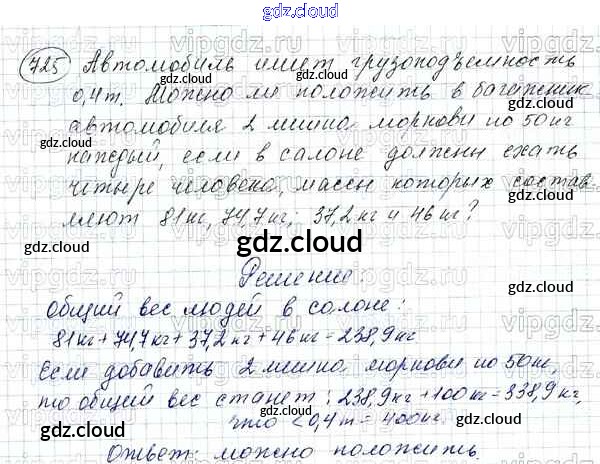 gdz.cloud
725 Автомобиль имеет грузоподъемность
0,4 т. Можно ли положить в багажник
автомобиля 2 мешка моркови по 50 кг
каждый, если в салоне должны ехать
четыре человека, массы которых состав-
ляют 81 кг, 74,7 кг; 37,2 кг и 46 кг?
gdz.cloud
Решение:
Общий вес людей в салоне:
81 кг + 74,7 кг + 37,2 кг + 46 кг = 238,9 кг
Если добавить 2 мешка моркови по 50 кг,
то общий вес станет: 238,9 кг + 100 кг = 338,9 кг,
что < 0,4 т = 400 кг.
Ответ: можно положить.
gdz.cloud